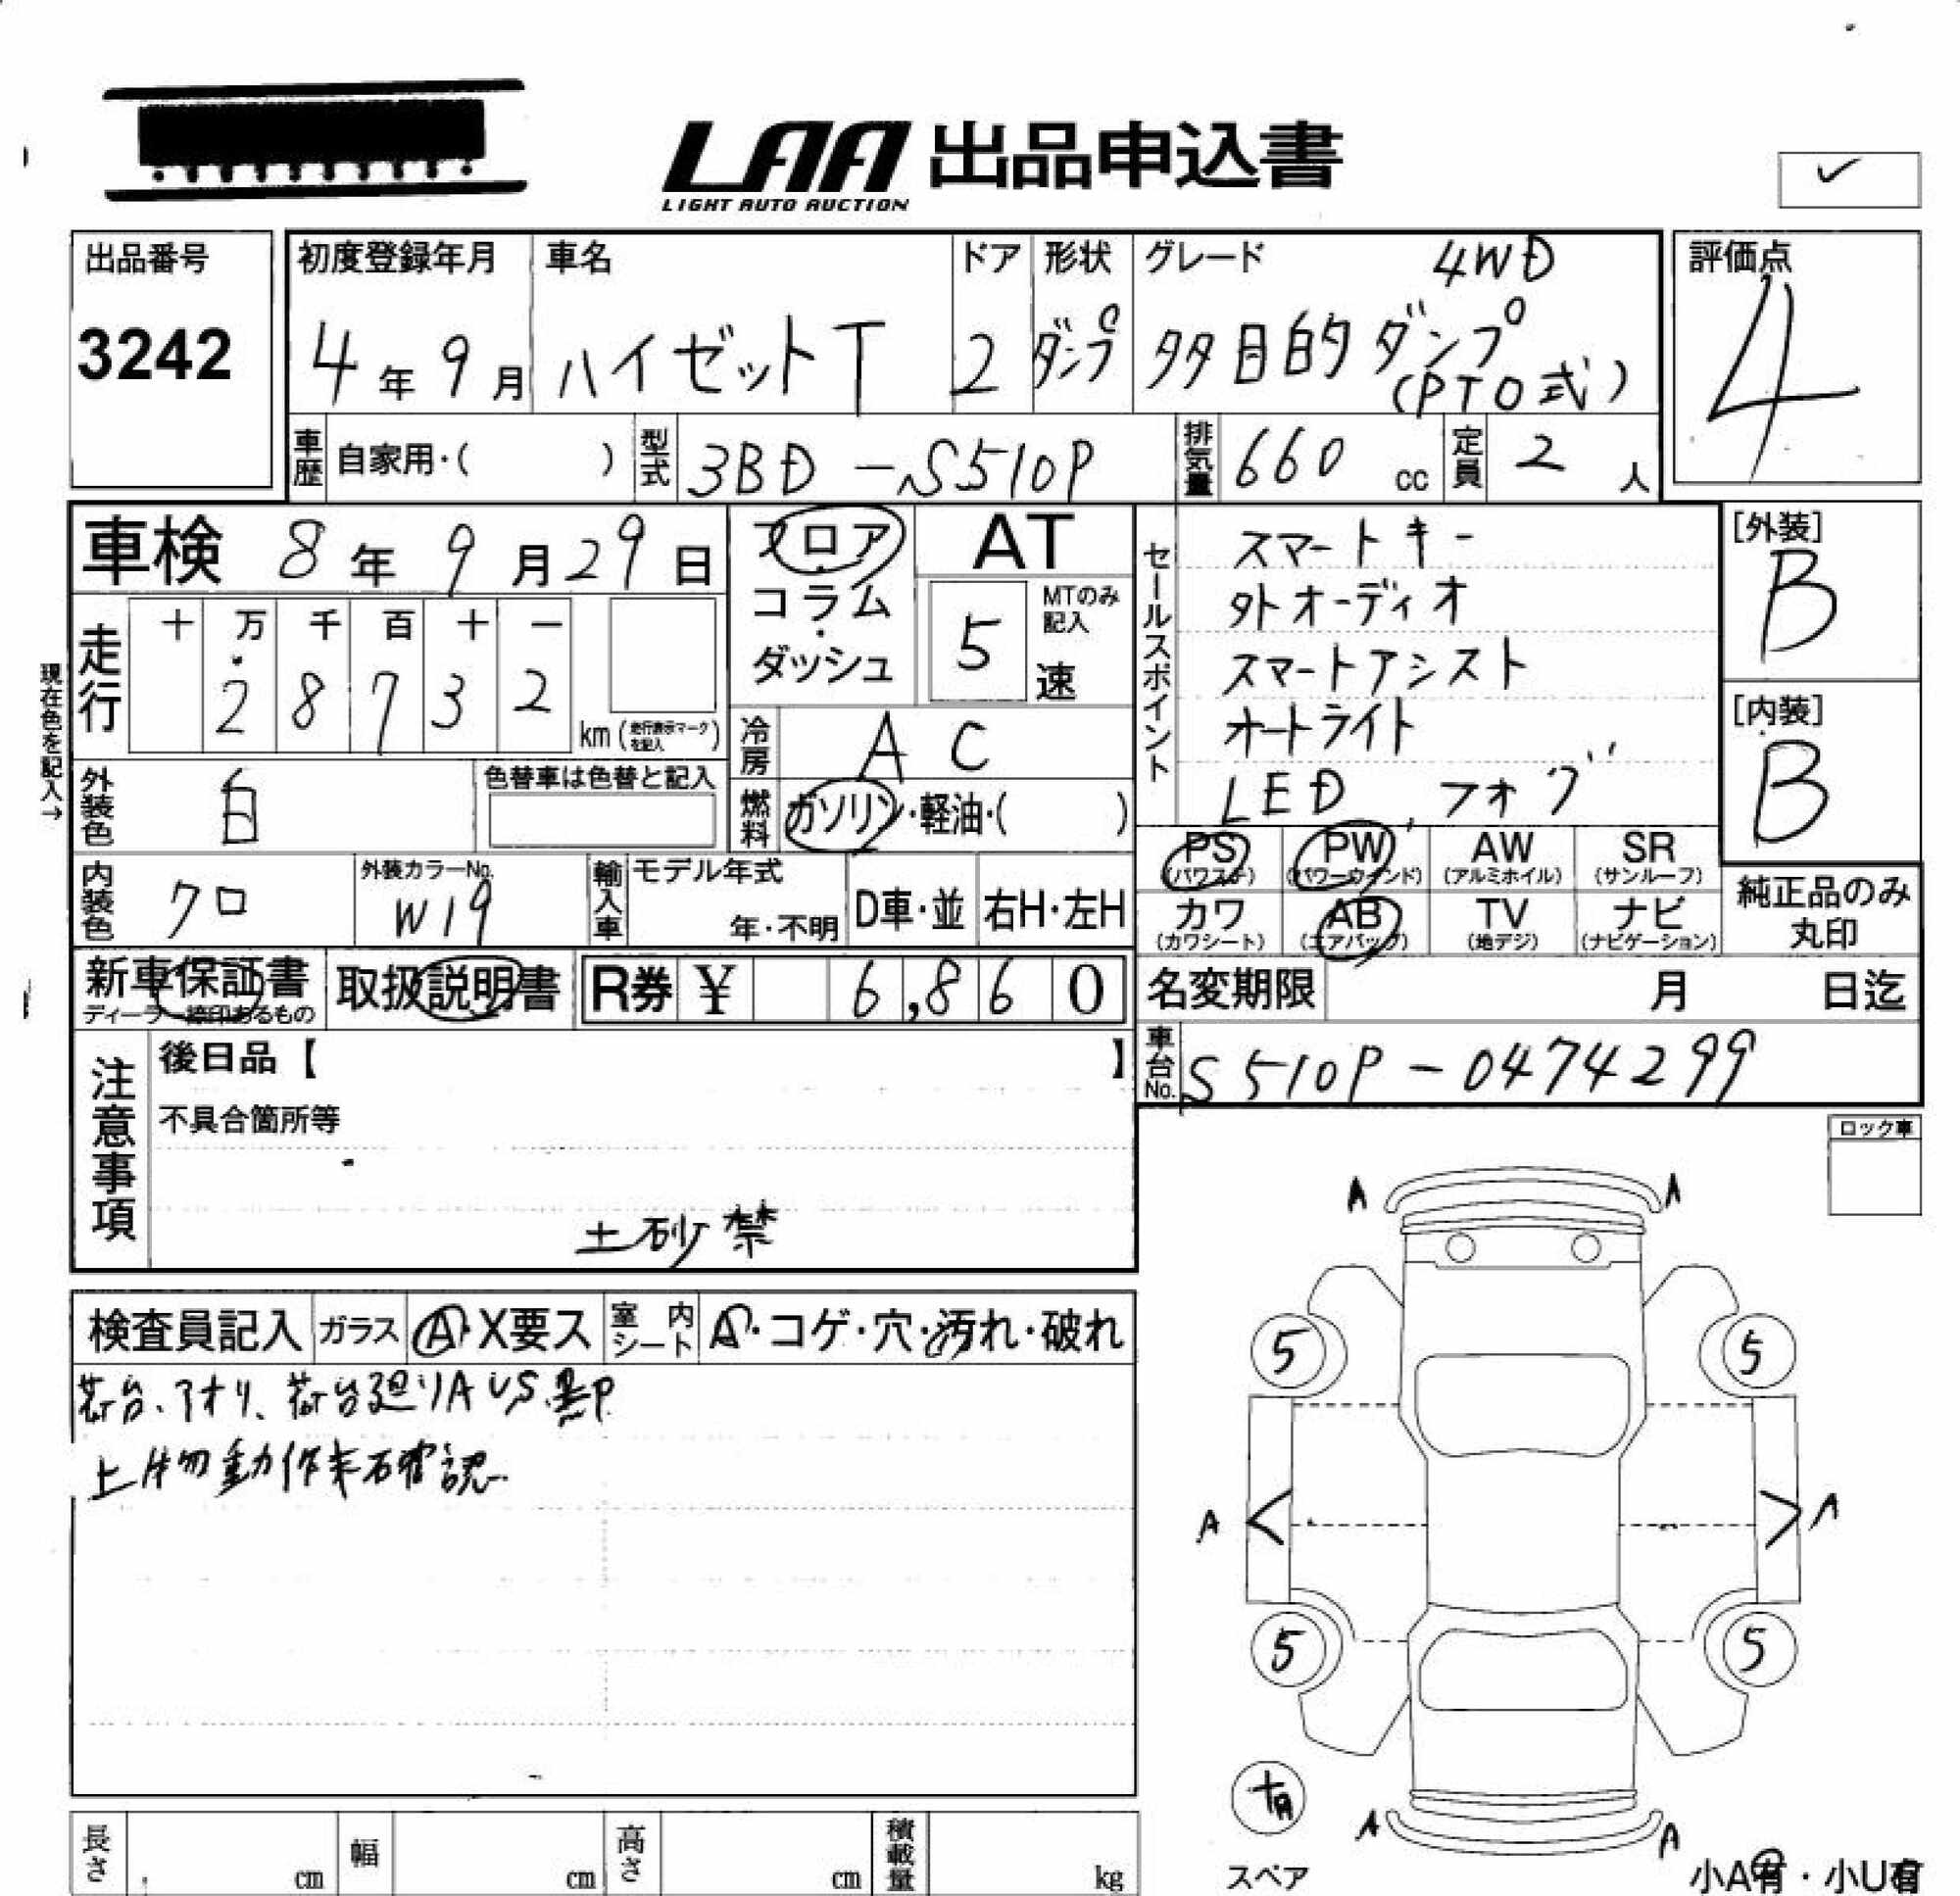 LAA 出品申込書
LIGHT AUTO AUCTION
✓
出品番号
3242
初度登録年月
4年9月
車名
ハイゼットT
ドア
2
形状
ダンプ
グレード
4WD
多目的ダンプ
(PTO式)
評価点
4
車歴 自家用・( )
型式 3BD-S510P
排気量 660 cc
定員 2 人
車検 8年9月29日
フロア・コラム・ダッシュ
AT
5
MTのみ記入
速
セールスポイント
スマートキー
外オーディオ
スマートアシスト
オートライト
LED,フォグ
[外装]
B
[内装]
B
現在色を記入→
走行
十 万 千 百 十 一
2 8 7 3 2
km(走行表示マークを記入)
冷房 AC
燃料 ガソリン・軽油・( )
外装色 白
色替車は色替と記入
内装色 クロ
外装カラーNo.
W19
輸入車
モデル年式
年・不明
D車・並
右H・左H
PS (パワステ)
PW (パワーウインド)
AW (アルミホイル)
SR (サンルーフ)
カワ (カワシート)
AB (エアバッグ)
TV (地デジ)
ナビ (ナビゲーション)
純正品のみ
丸印
新車保証書
ディーラー捺印あるもの
取扱説明書
R券 ¥ 6,860
名変期限 月 日迄
車台No. S510P-0474299
注意事項
後日品【 】
不具合箇所等
土砂禁
ロック車
検査員記入
ガラス A・X要ス
室内シート A・コゲ・穴・汚れ・破れ
荷台、アオリ、荷台廻りAUS
上物動作未確認
A A
5 5
A A
5 5
スペア
A A
長さ cm
幅 cm
高さ cm
積載量 kg
小A有・小U有